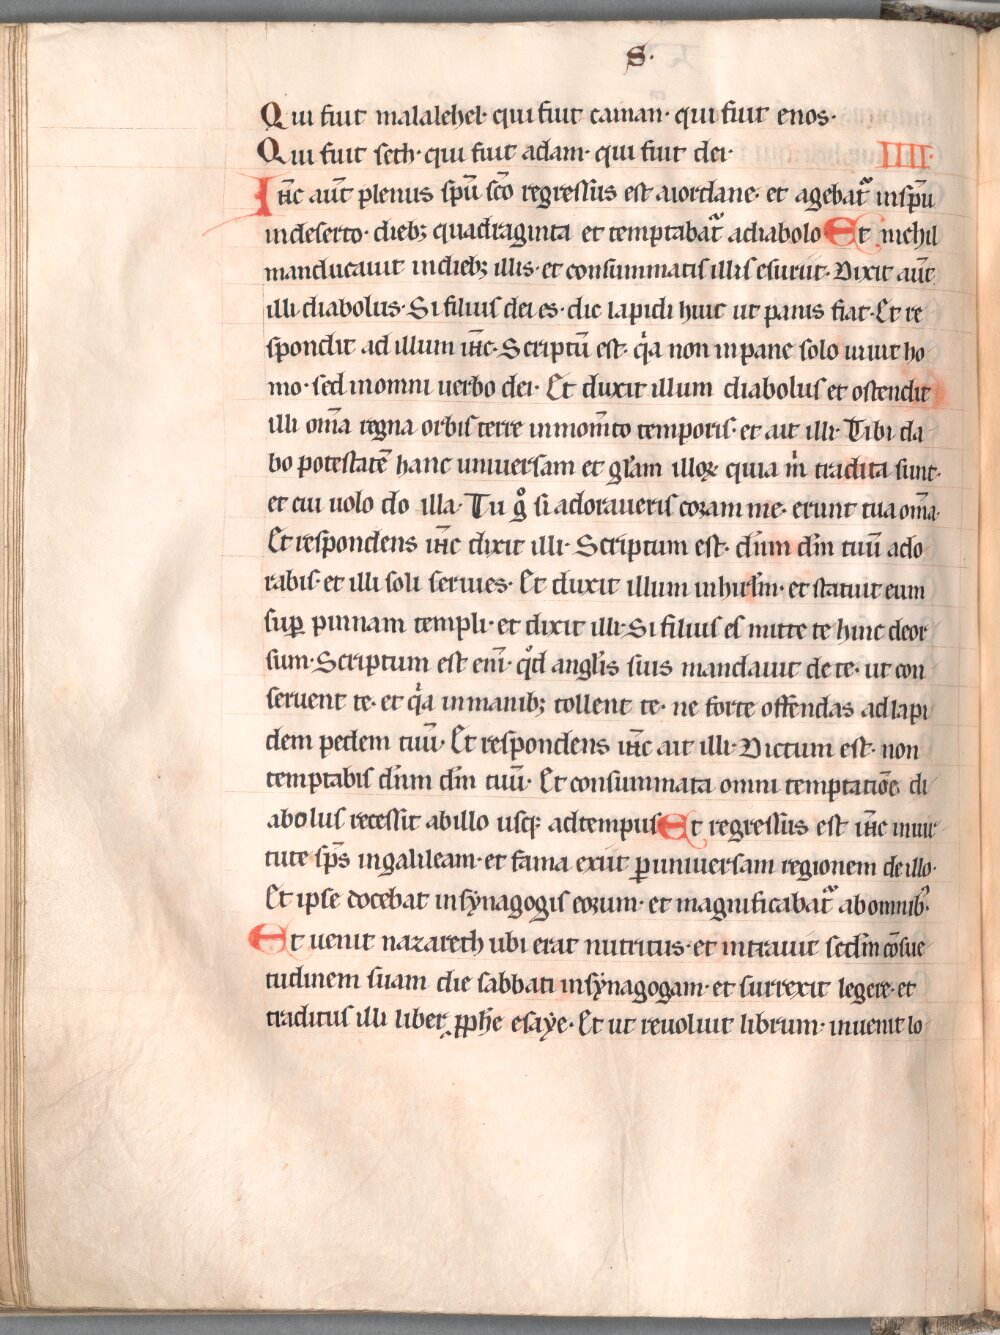 S·
Qui fuit malalehel· qui fuit cainan· qui fuit enos·
Qui fuit seth· qui fuit adam· qui fuit dei· IIII·
Ih̄c aut̄ plenus sp̄u sc̄o regressus est aiordane· et agebat᷑ insp̄u
indeserto· dieb; quadraginta et temptabat᷑ adiabolo Et nichil
manducauit indieb; illis· et consummatis illis esuriit· Dixit aut̄
illi diabolus· Si filius dei es· dic lapidi huic ut panis fiat· Et re
spondit ad illum ih̄c· Scriptū est· qͥa non inpane solo uiuit ho
mo· sed inomni uerbo dei· Et duxit illum diabolus et ostendit
illi om̄a regna orbis terre inmom̄to temporis· et ait illi· Tibi da
bo potestatē hanc uniuersam et gl̄am illoꝝ quia mͥ tradita sunt·
et cui uolo do illa· Tu gͦ si adoraueris coram me· erunt tua om̄a·
Et respondens ih̄c dixit illi· Scriptum est· dn̄m dm̄ tuū ado
rabis· et illi soli seruies· Et duxit illum inhirl̄m· et statuit eum
suꝑ pinnam templi· et dixit illi· Si filius es mitte te hinc deor
sum· Scriptum est enī· qͦd angl̄is suis mandauit de te· ut con
seruent te· et qͥa inmanib; tollent te· ne forte offendas ad lapi
dem pedem tuū· Et respondens ih̄c ait illi· Dictum est· non
temptabis dn̄m dm̄ tuū· Et consummata omni temptatiōe di
abolus recessit abillo usqꝫ adtempus Et regressus est ih̄c inuir
tute sp̄s ingalileam· et fama exiit ꝑuniuersam regionem de illo·
Et ipse docebat insynagogis eorum· et magnificabat᷑ abomnibꝰ·
Et uenit nazareth ubi erat nutritus· et intrauit scdm̄ cōsue
tudinem suam die sabbati insynagogam· et surrexit legere· et
traditus illi liber ꝓph̄e esaẏe· Et ut reuoluit librum· inuenit lo